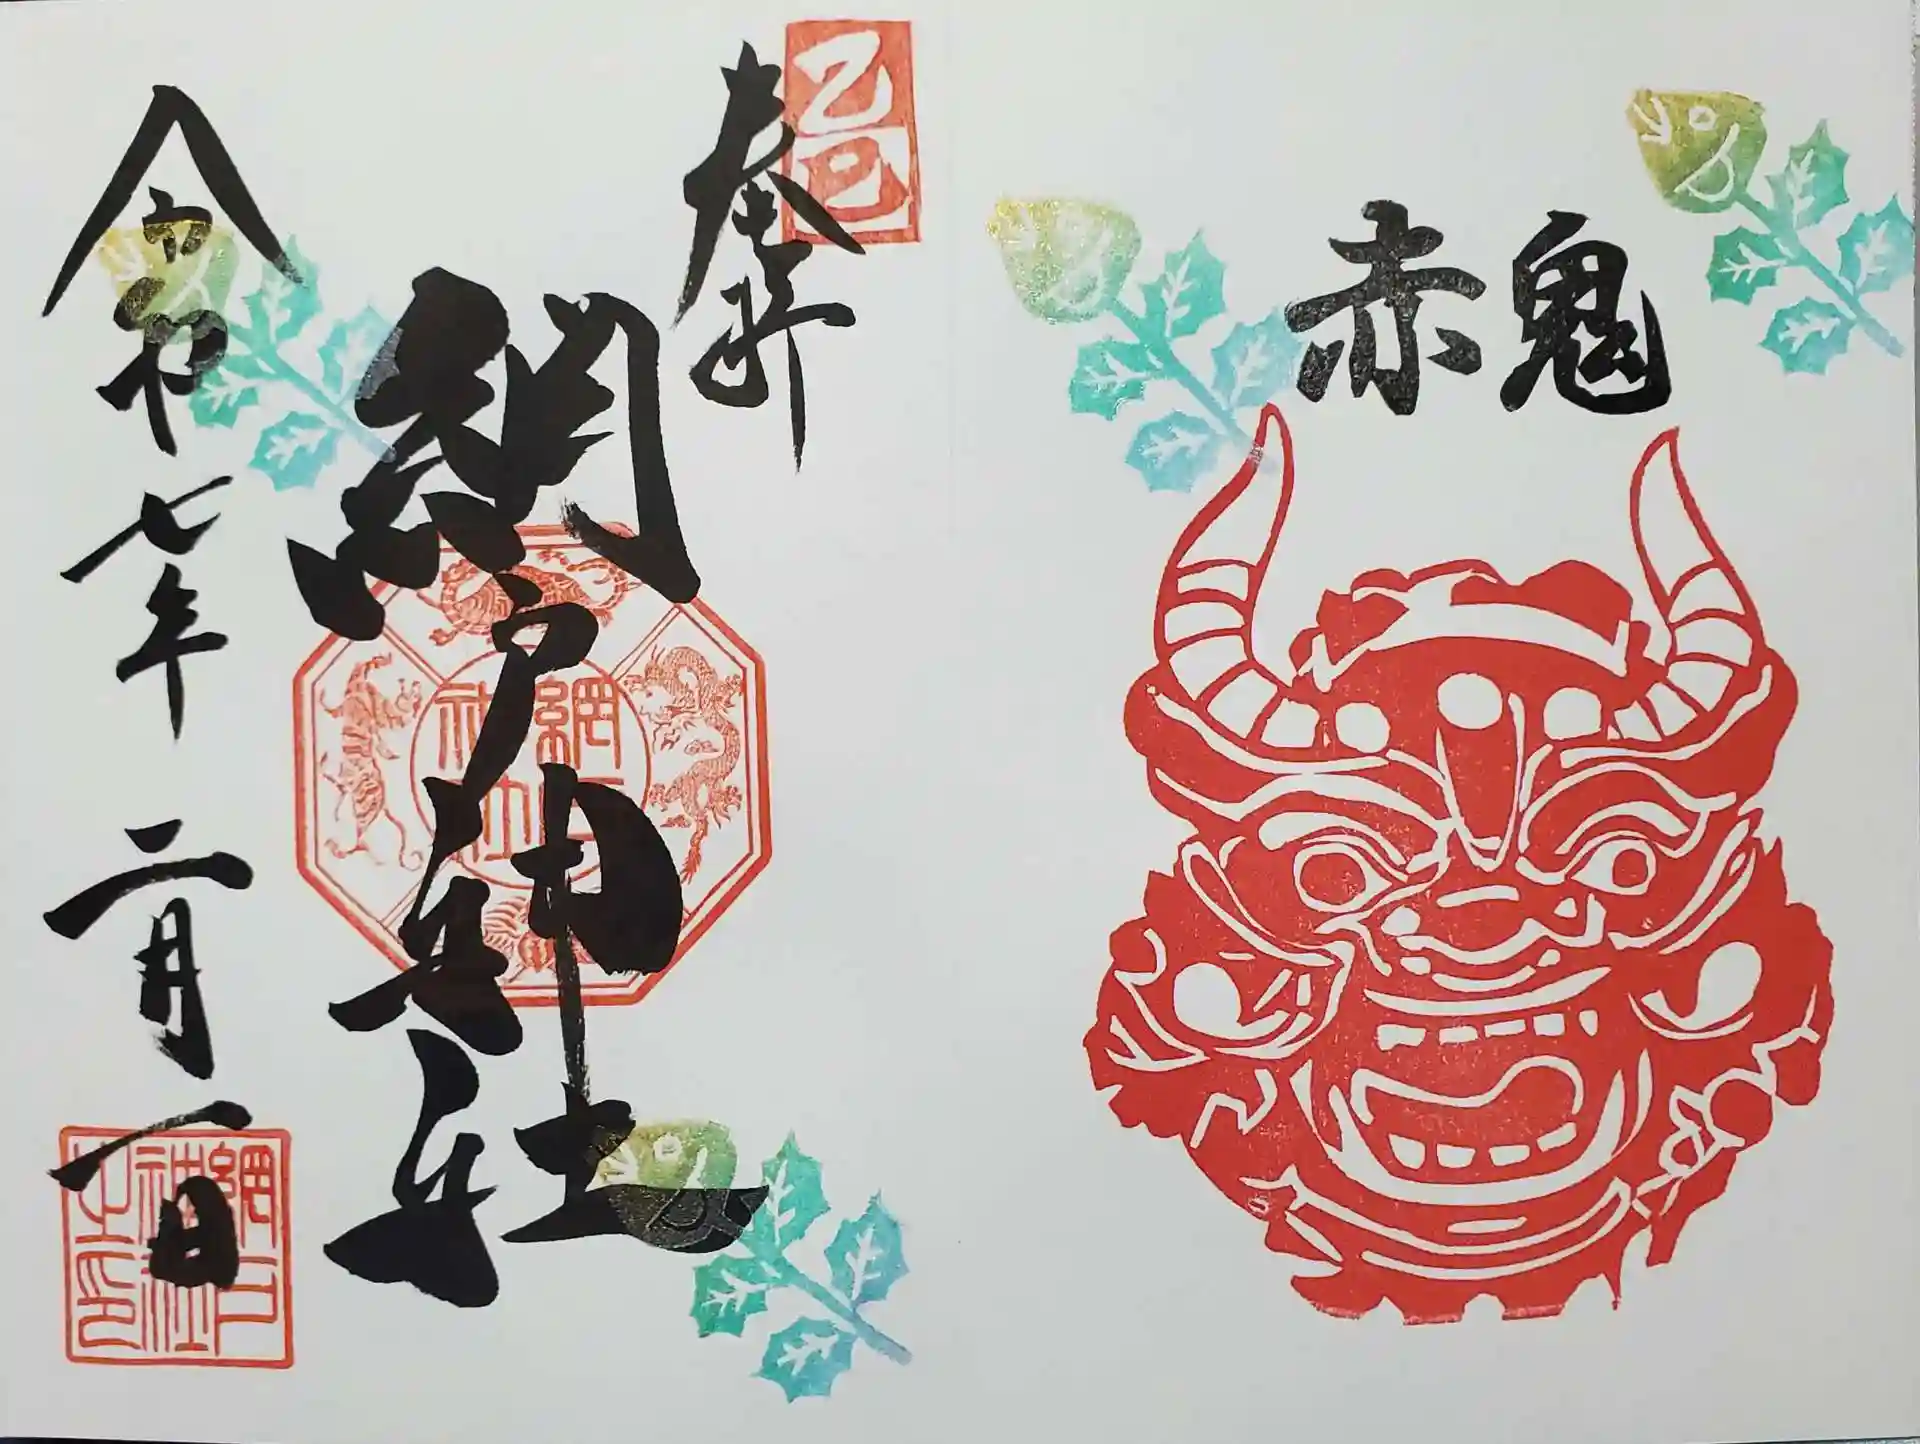 赤鬼
乙巳
奉拝
網戸神社
網戸神社
令和七年二月一日
網戸神社之印